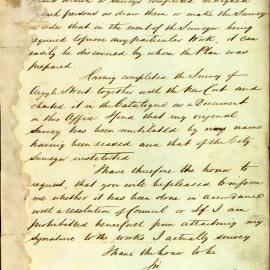 such persons as draw them or make the Survey
in order that in the event of the Surveyor being
required before any particular Work, it can
easily be discovered by whom the Plan was
prepared.
Having completed the Survey of
Argyle Street together with the New Cut and
charted it in the Catalogue as a Document
in this Office I find that my original
Survey has been mutilated by my name
having been erased and that of the City
Surveyor instituted
I have therefore the honor to
request, that you will be pleased to inform
me whether it has been done in accordance
with a resolution of Council or If I am
prohibited henceforth from attaching my
signature to the works I actually survey
I have the honor to be
Sir